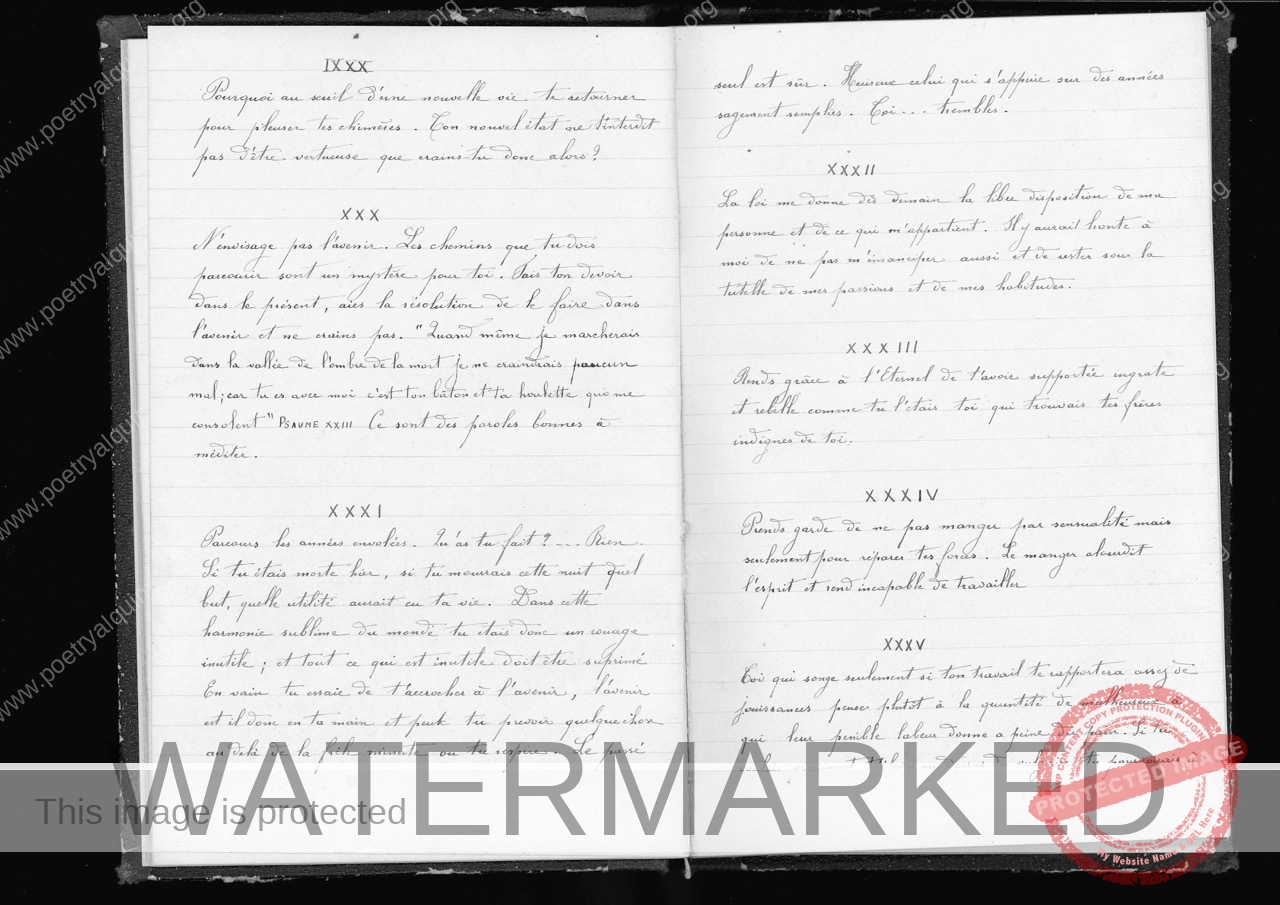 IXXX
Pourquoi au seuil d'une nouvelle vie te retourner
pour pleurer tes chimères. Ton nouvel état ne t'interdit
pas d'être vertueuse que crains-tu donc alors?
XXX
N'envisage pas l'avenir. Les chemins que tu dois
parcourir sont un mystère pour toi. Fais ton devoir
dans le présent, aies la résolution de le faire dans
l'avenir et ne crains pas. "Quand même je marcherais
dans la vallée de l'ombre de la mort je ne craindrais aucun
mal; car tu es avec moi c'est ton bâton et ta houlette qui me
consolent" PSAUME XXIII Ce sont des paroles bonnes à
méditer.
XXXI
Parcours les années envolées. Qu'as tu fait? ... Rien.
Si tu étais morte hier, si tu mourrais cette nuit quel
but, quelle utilité aurait eu ta vie. Dans cette
harmonie sublime du monde tu étais donc un rouage
inutile; et tout ce qui est inutile doit être suprimé
En vain tu essaie de t'accrocher à l'avenir, l'avenir
est il donc en ta main et peut tu prevoir quelque chose
au delà de la frêle minute ou tu respires. Le passé
seul est sûr. Heureux celui qui s'appuie sur des années
sagement remplies. Toi... trembles.
XXXII
La loi me donne dès demain la libre disposition de ma
personne et de ce qui m'appartient. Il y aurait honte à
moi de ne pas m'émanciper aussi et de rester sous la
tutelle de mes passions et de mes habitudes.
XXXIII
Rends grâce à l'Eternel de t'avoir supportée ingrate
et rebelle comme tu l'étais toi qui trouvais tes frères
indignes de toi.
XXXIV
Prends garde de ne pas manger par sensualité mais
seulement pour réparer tes forces. Le manger alourdit
l'esprit et rend incapable de travailler
XXXV
Toi qui songe seulement si ton travail te rapportera assez de
jouissances pense plutot à la quantité de malheureux à
qui leur penible labeur donne a peine du pain. Si tu
www.poetryalqui
.org
This image is protected
WATERMARKED
WP CONTENT COPY PROTECTION PLUGIN
PROTECTED IMAGE
My Website Name & URL Here